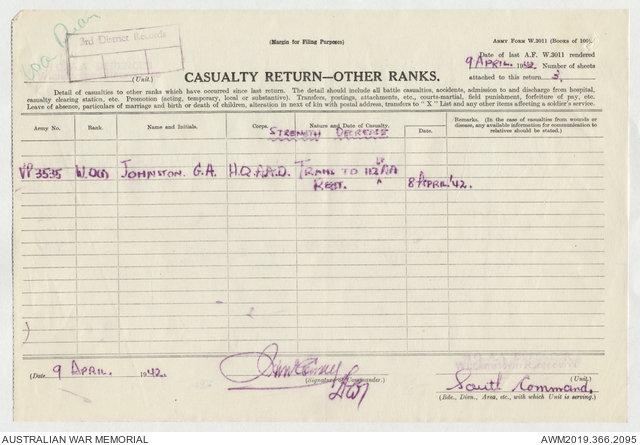 3rd District Records
(Margin for Filing Purposes)
ARMY FORM W.3011 (Books of 100).
Date of last A.F. W.3011 rendered
9 APRIL. 1942. Number of sheets
attached to this return 3.
(Unit.)
CASUALTY RETURN—OTHER RANKS.
Detail of casualties to other ranks which have occurred since last return. The detail should include all battle casualties, accidents, admission to and discharge from hospital,
casualty clearing station, etc. Promotion (acting, temporary, local or substantive). Transfers, postings, attachments, etc., courts-martial, field punishment, forfeiture of pay, etc.
Leave of absence, particulars of marriage and birth or death of children, alteration in next of kin with postal address, transfers to "X" List and any other items affecting a soldier's service.
Army No.
Rank.
Name and Initials.
Corps.
Nature and Date of Casualty.
Date.
Remarks. (In the case of casualties from wounds or
disease, any available information for communication to
relatives should be stated.)
STRENGTH DECREASE
VP3535 JOHNSTON. G.A. TRANS TO
8 APRIL '42.
(Date 9 APRIL. 1942.
(Signature of Commander.)
(Unit.)
South Command.
(Bde., Divn., Area, etc., with which Unit is serving).
AUSTRALIAN WAR MEMORIAL
AWM2019.366.2095